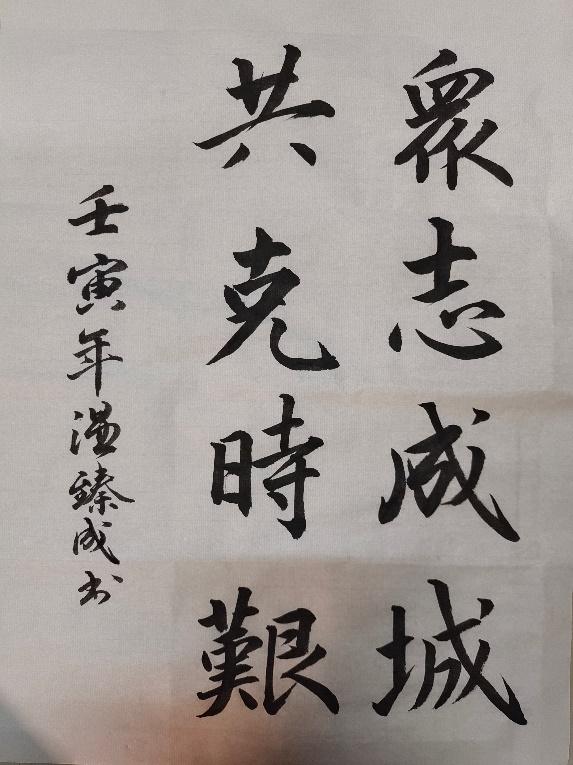 眾志成城
共克時艱
壬寅年溫臻成书